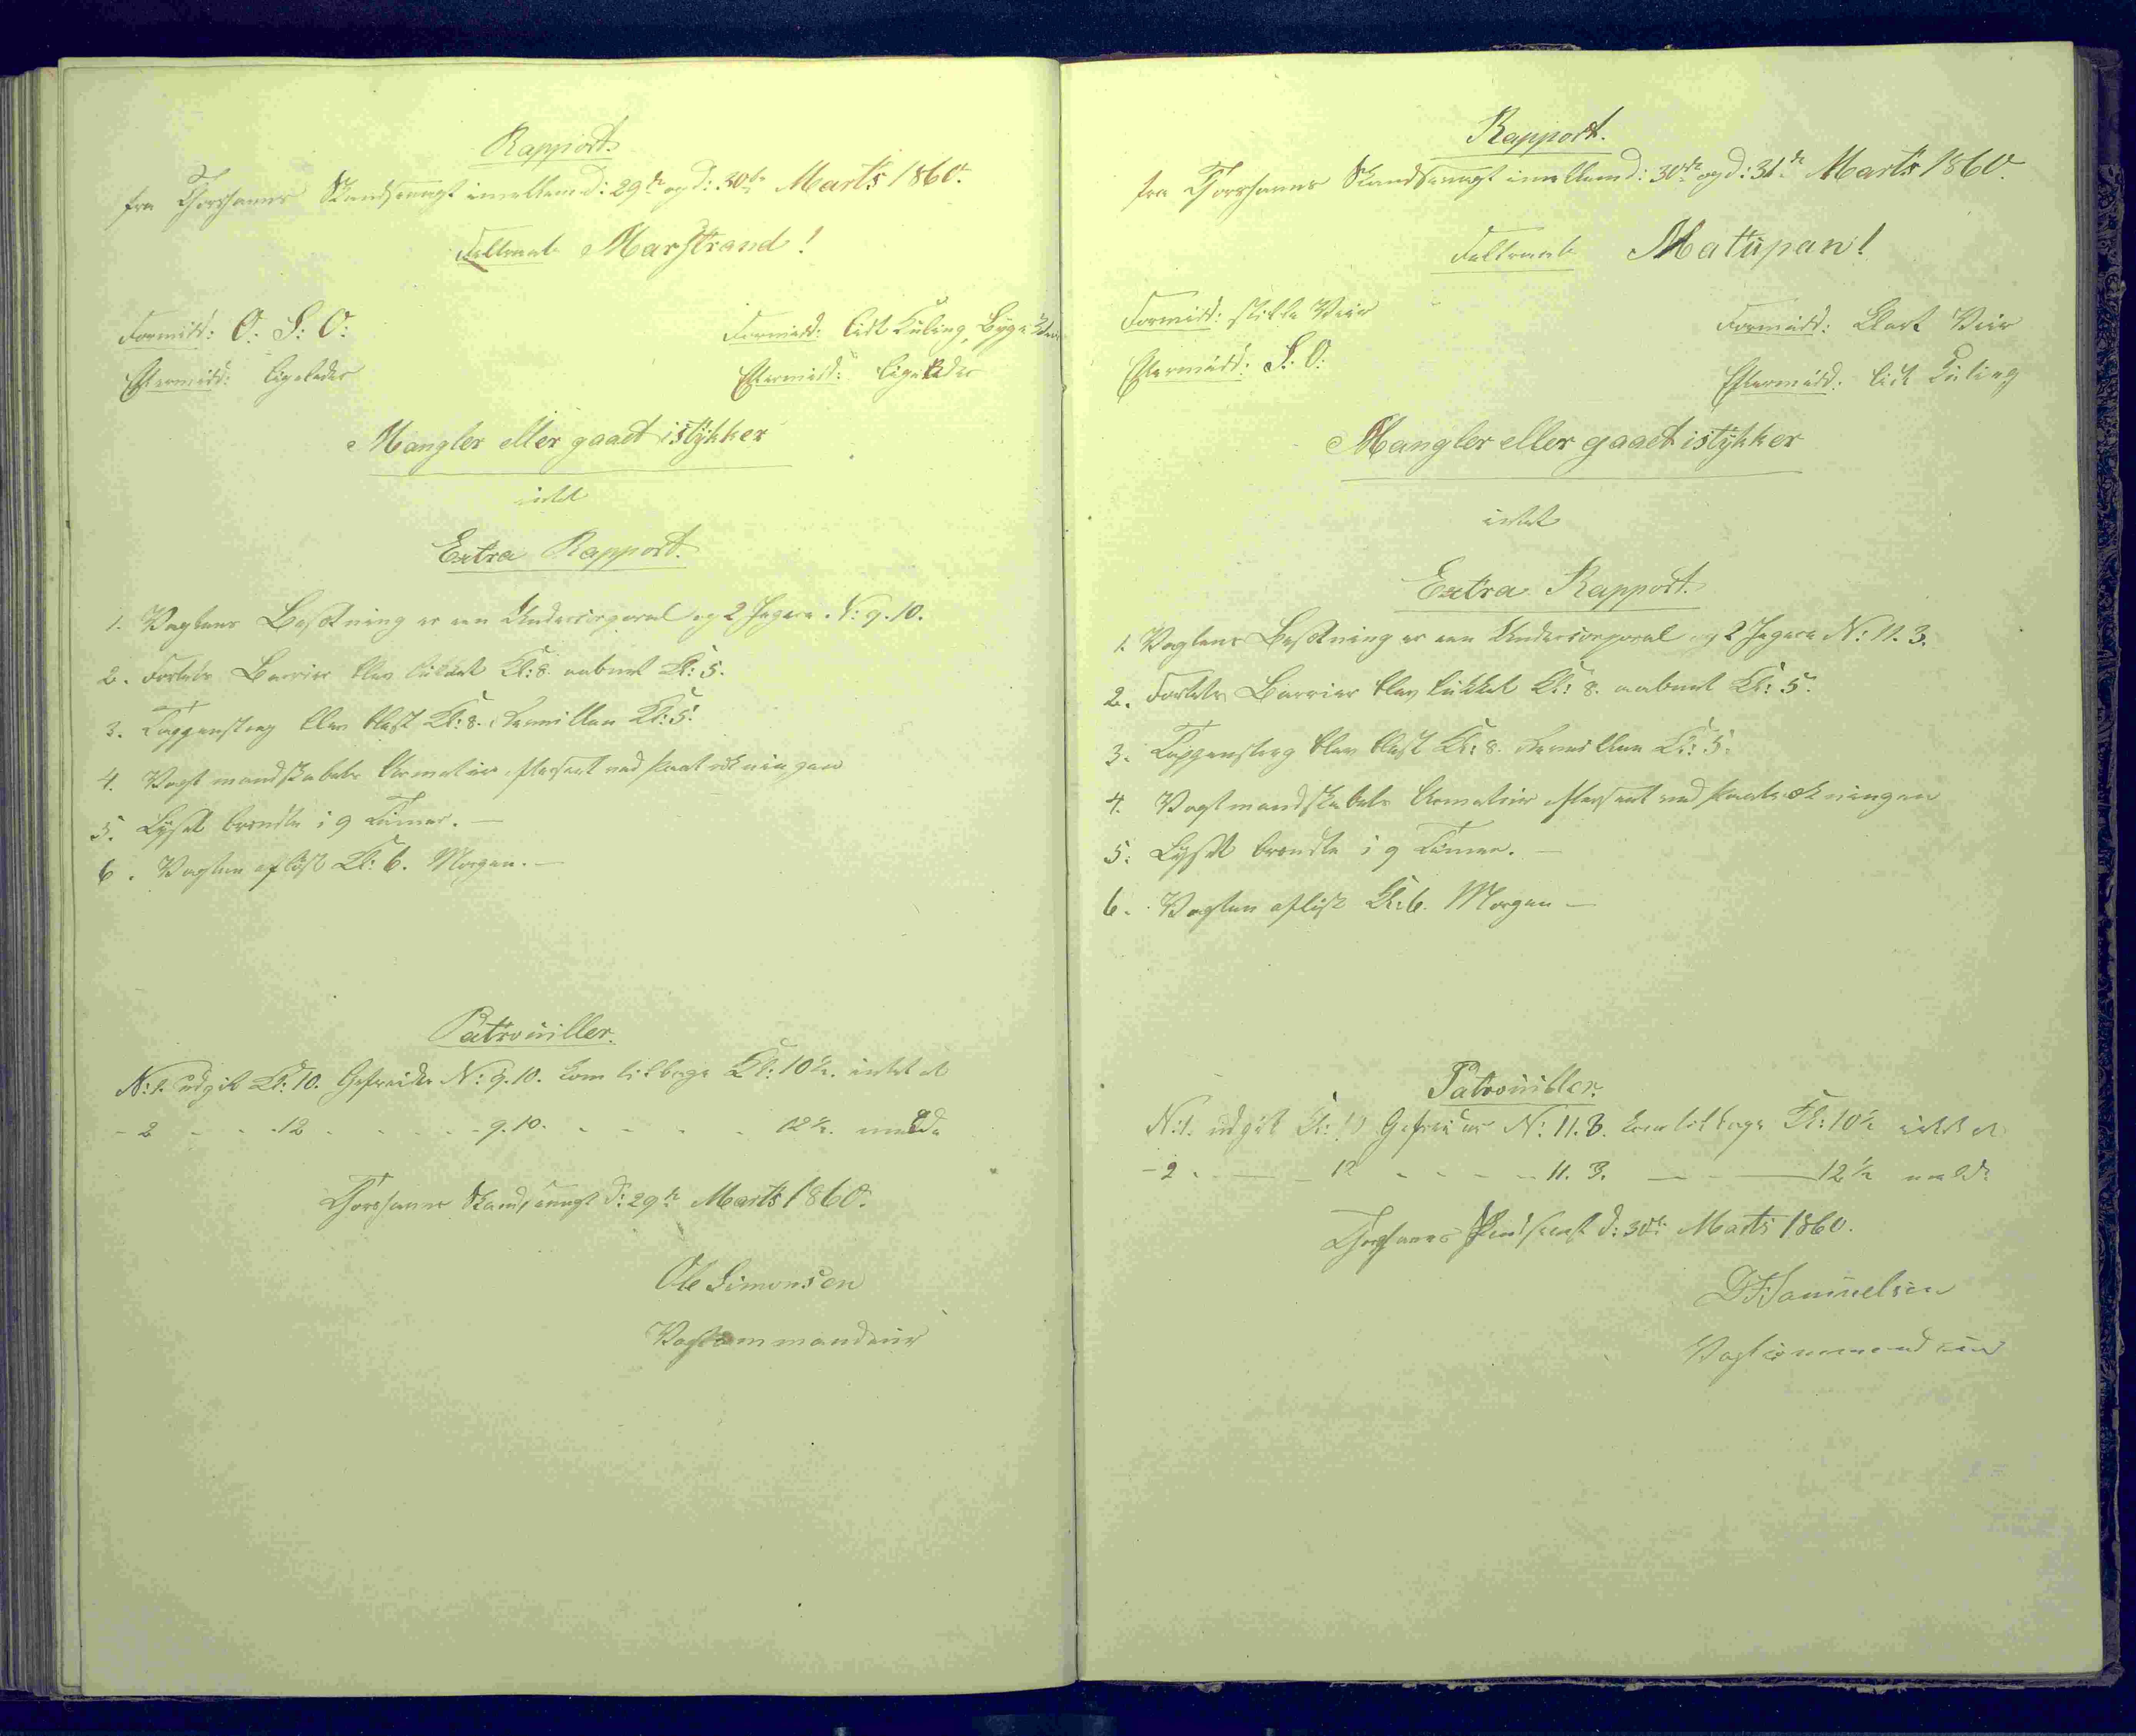 Rapport.
fra Thorshavns Skandsevagt imellem d: 29de og d: 30te Marts 1860.
Feltraab Marstrand!
Formidd: O. S: O: Formidd: lidt Kuling, Byge Veir
Eftermidd: ligeledes Eftermidd: ligeledes
Mangler eller gaaet istÿkker
intet
Extra Rapport.
1. Vagtens Besætning er een Undercorporal og 2 Jægere N: 9. 10.
2. Fortets Barrier blev lukket Kl: 8. aabnet Kl: 5.
3. Tappenstreg blev blæst Kl: 8. Reveillen Kl: 5.
4. Vagtmandskabets Armatur efterseet ved Paatrækningen
5. Lyset brændte i 9 Timer. —
6. Vagten afløst Kl: 6. Morgen. —
Patrouiller.
N: 1. udgik Kl: 10. Gefreider N: 9. 10. kom tilbage Kl: 10½. intet at
- 2 - - 12 - - - - 9. 10. - - - - 12½. melde
Thorshavns Skandsevagt d: 29de Marts 1860.
Ole Simonsen
Vagtcommandeur
Rapport.
fra Thorshavns Skandsevagt imellem d: 30te og d: 31te Marts 1860.
Feltraab Matupan!
Formidd: stille Veir Formidd: Klart Veir
Eftermidd: S: O: Eftermidd: lidt Kuling
Mangler eller gaaet istÿkker
intet
Extra Rapport.
1. Vagtens Besætning er een Undercorporal og 2 Jægere N: 11. 3.
2. Fortets Barrier blev lukket Kl: 8. aabnet Kl: 5.
3. Tappenstreg blev blæst Kl: 8. Reveillen Kl: 5.
4. Vagtmandskabets Armatur efterseet ved Paatrækningen
5. Lyset brændte i 9 Timer. —
6. Vagten afløst Kl: 6. Morgen —
Patrouiller.
N: 1. udgik Kl: 10 Gefreider N: 11. 3. kom tilbage Kl: 10½ intet at
- 2 - — - 12 - - - - 11. 3. — — 12½ melde
Thorshavns Skandsevagt d: 30te Marts 1860.
D F Samuelsen
Vagtcommandeur